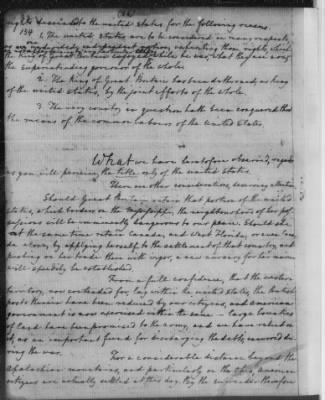 right
to the united states for the following reasons.
154 1. The united states are to be considered in many respects,
as one undivided independent nation, inheriting those rights, which
the King of Great Britain enjoyed,
the superintending governor of the whole.
2. The King of Great Britain has been dethroned, as king
of the united states, by the joint efforts of the whole.
3. The very country in question hath been conquered thro'
the means of the common labours of the United States.
What we have heretofore observed, regards
as you will perceive, the title only of the united States.
There are other considerations, deserving attention.
Should Great Britain retain that portion of the united
states, which borders on the Mississippi, the neighbourhood of her pos-
sessions will be immensely dangerous to our peace. Should she
at the same time retain Canada, and West Florida, or even Cana-
da alone, by applying herself to the settlement of that country, and
pushing on her trade there with vigor, a new nursery for her marine
will speedily be established.
From a full confidence, that the western
territory, now contended for, lay within the united states, the British
posts therein have been reduced by our citizens, and american
government is now exercised within the same — large bounties
of land have been promised to the army, and we have relied on
it, as an important fund for discharging the debts, incurred du-
ring the war.
For a considerable distance beyond the
Apalachian mountains, and particularly on the Ohio, american
citizens are actually settled at this day. By the surrender therefore